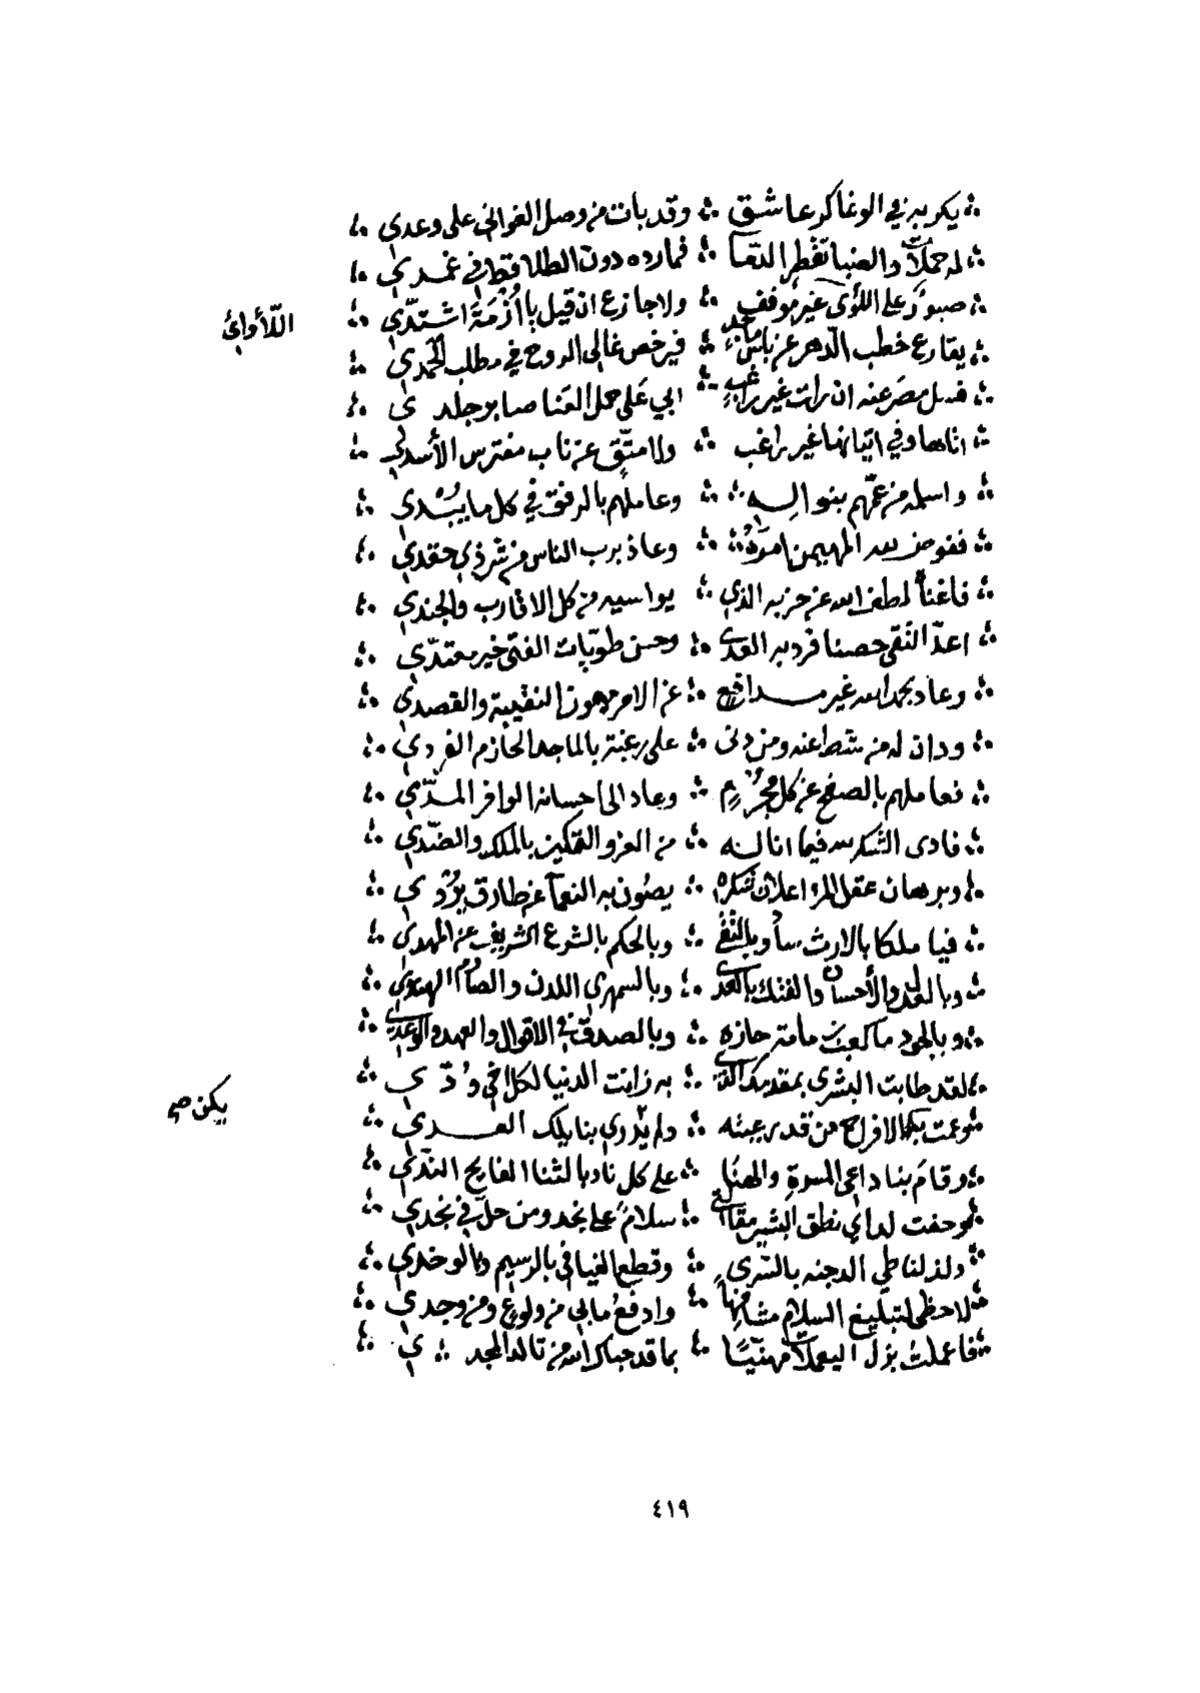 يكر به في الوغا كر عاشق ∴ وقد بات من وصل الغواني على وعدي
له حملات والضبا تقطر الدما ∴ فما رده دون الطلا قط في غمدي
صبور على اللأوى غير موقف ∴ ولا جازع ان قيل يا أزمة اشتدي
اللأوائ
يقارع خطب الدهر عن باس ماجد ∴ فيرخص غالي الروح في مطلب الحمدي
مصر عنه ان رات غير راغب ∴ ابي على حمل العنا صابر جلدي
اتاها وفي اتيانها غير راغب ∴ ولا متق عن ناب مفترس الأسدي
واسلمه من عمهم بنواله ∴ وعاملهم بالرفق في كل ما يبدي
ففوض لله المهيمن امره ∴ وعاذ برب الناس من شر ذي حقدي
فاغناه لطف الله عن حزبه الذي ∴ يواسيه من كل الاقارب والجندي
اعد التقى حصنا فرد به العدى ∴ وحسن طويات الفتى خير معتدي
وعاد بحمد الله غير مدافع ∴ عن الامر ميمون النقيبة والقصدي
ودان له من شط عنه ومن دنى ∴ على رغبة بالماجد الحازم الفردي
فعاملهم بالصفح عن كل مجرم ∴ وعاد الى احسانه الوافر المدي
فادى الشكر لله فيما اناله ∴ من العز والتمكين بالملك والضدي
وبرهان عقل المرء اعلان شكره ∴ يصون به النعما عن طارق يؤدي
فيا ملكا بالارث ساد وبالتقى ∴ وبالحكم بالشرع الشريف عن المهدي
وبالعدل والأحسان والفتك بالعدى ∴ وبالسمهري اللدن والصارم الهندي
وبالجود ما كعب بن مامة حازه ∴ وبالصدق في الاقوال والعهد والوعدي
لقد طابت البشرى بمقدمك الذي ∴ به زانت الدنيا لكل اخي ودي
وعمت بك الافراح من قدر عبئه ∴ ولم يدري بنا يلك العدي
يكن صح
وقام بنا داعي المسرة والهنا ∴ على كل ناد بالثنا الفايح الندي
وحفت لداي نطق البشير مقالتي ∴ سلام على نجد ومن حل في نجدي
ولذ لنا طي الدجنه بالسرى ∴ وقطع الفيافي بالرسيم وبالوخدي
لاحظى لتبليغ السلام مشافها ∴ وادفع ما بي من ولوع ومن وجدي
فاعملت بزل اليعملات مهنيا ∴ بما قد حباك الله من تالد المجدي
٤١٩